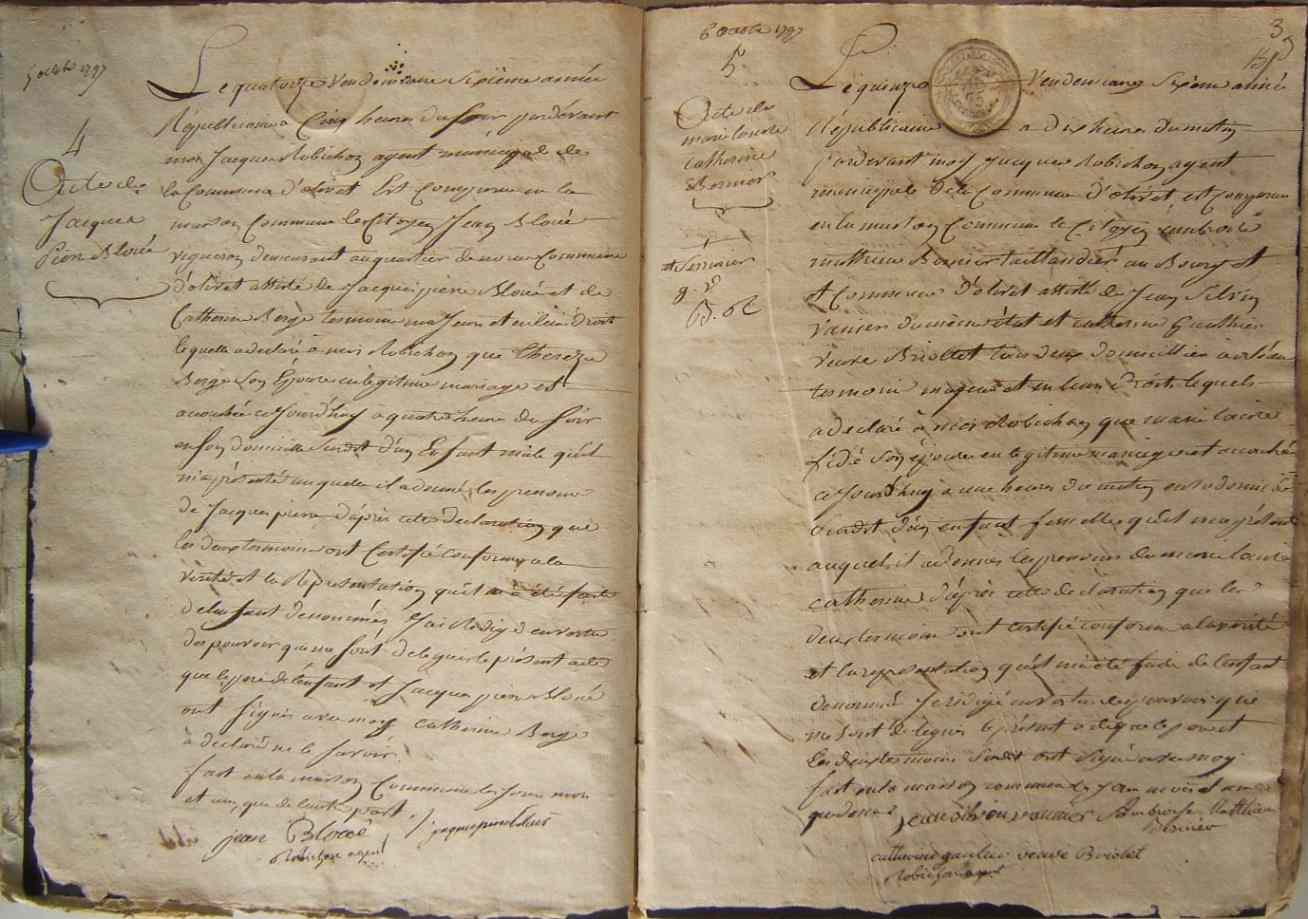 5 octobre 1797
4
Acte de
Jacques
Pierre Bloué
Le quatorze Vendemiaire Sixième année
Républicaine a Cinq heures du soir pardevant
moi Jacques Robichon agent municipal de
la Commune d'olivet Est Comparu en la
maison Commune le Citoyen Jean Bloué
vigneron demeurant au quartier de Commune
d'olivet assisté de Jacques pierre Bloué et de
Catherine Berge temoins majeurs et en leur Droits
lequelle a declaré à moi Robichon que Therezse
Berge son Epouse en legitime mariage est
acouchée ce Jourd'huy a quatre heure du soir
en son domicille Susdit d'un Enfant mâle qu'il
m'a présenté auquelle il a donné les prenoms
de Jacques pierre d'après cette declaration que
les deux temoins ont Certifié conforme a la
vérité et la Représentation qu'il m'a été faite
de l'enfant denommés J'ai Redigé en vertu
des pouvoir qui me sont delegués le présent acte
que le pere de l'enfant et Jacques pierre Bloué
ont signés avec moy Catherine Berge
a declaré ne le savoir
fait en la maison Commune les Jours mois
et an que de l'autre part
jean Bloué jaques pierre bloué
Robichon agent
6 octobre 1797
3
5
Acte de
marie
Catherine
Bernier
Le quinze Vendemiaire Sixieme année
Républicaine a dix heures du matin
pardevant moy Jacques Robichon agent
municipale De la Commune d'olivet est comparu
en la maison Commune le Citoyen ambroise
matthieu Bernier taillandier au Bourg et
Commune D'olivet assisté de Jean Silvin
vannier du même état et catherine Gauthier
veuve Briollet tous deux domicilliés a
temoins majeurs et en leurs Droits lequels
a declaré à moi Robichon que marie
son épouse en legitime mariage est acouchée
ce Jourd'huy a une heures du matin en son domicile
susdit d'un enfant femelle qu'il m'a présenté
auquel il a donnés les prenoms de marie
catherine d'après cette declaration que les
deux temoins ont certifié conforme a la vérité
et la representation qu'il m'a été faite de l'enfant
denommé J'ai redigé en vertu des pouvoir qui
me sont délégués le présent acte que le pere et
les deux temoins susdit ont signé avec moy
fait en la maison commune les Jour mois et an
que dessus jean silvin vannier Ambroise Matthieu
Bernier
catherine gautier veuve Briolet
Robichon agent